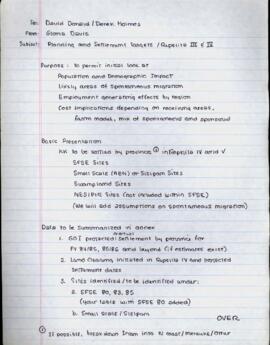 To: David Donald / Derek Holmes
From: Gloria Davis
Subject: Planning and Settlement Targets / Repelita III & IV
Purpose: To permit initial look at
Population and Demographic Impact
Likely areas of spontaneous migration
Employment generating effects by region
Cost implications depending on receiving areas,
farm model, mix of spontaneous and sponsored
Basic Presentation
KK to be settled by province ① in Repelita IV and V
SFSE Sites
Small Scale (ABN) or Sisipan Sites
Swampland Sites
NES/PIR Sites (not included within SFSE)
(We will add assumptions on spontaneous migration)
Data to be Summarized in annex
1. GOI presented settlement by province for
FY 84/85, 85/86 and beyond (if estimates exist)
2. Land Clearing initiated in Repelita IV and
Settlement dates
3. Sites identified / to be identified under:
a. SFSE 80, 83, 85
(your table with SFSE 80 added)
b. Small Scale / Sisipan
OVER
① If possible, break down Irian into N coast / Merauke / other